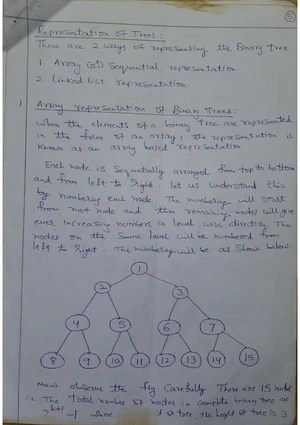 5
Representation of Trees:
There are 2 ways of representing the Binary tree
1. Array (or) Sequential representation
2. Linked list representation
1 Array representation of Binary Trees:
When the elements of a binary tree are represented
in the form of an array, the representation is
known as an array based representation.
Each node is sequentially arranged from top to bottom
and from left to right. let us understand this
by numbering each node. The numbering will start
from root node and then remaining nodes will give
ever increasing numbers in level wise direction. The
nodes on the same level will be numbered from
left to right. The numbering will be as show below.
1
2 3
4 5 6 7
8 9 10 11 12 13 14 15
Now observe the fig carefully. There are 15 node
i.e The total number of nodes in complete binary tree are
2^h+1 -1 where of tree, the height of tree is 3